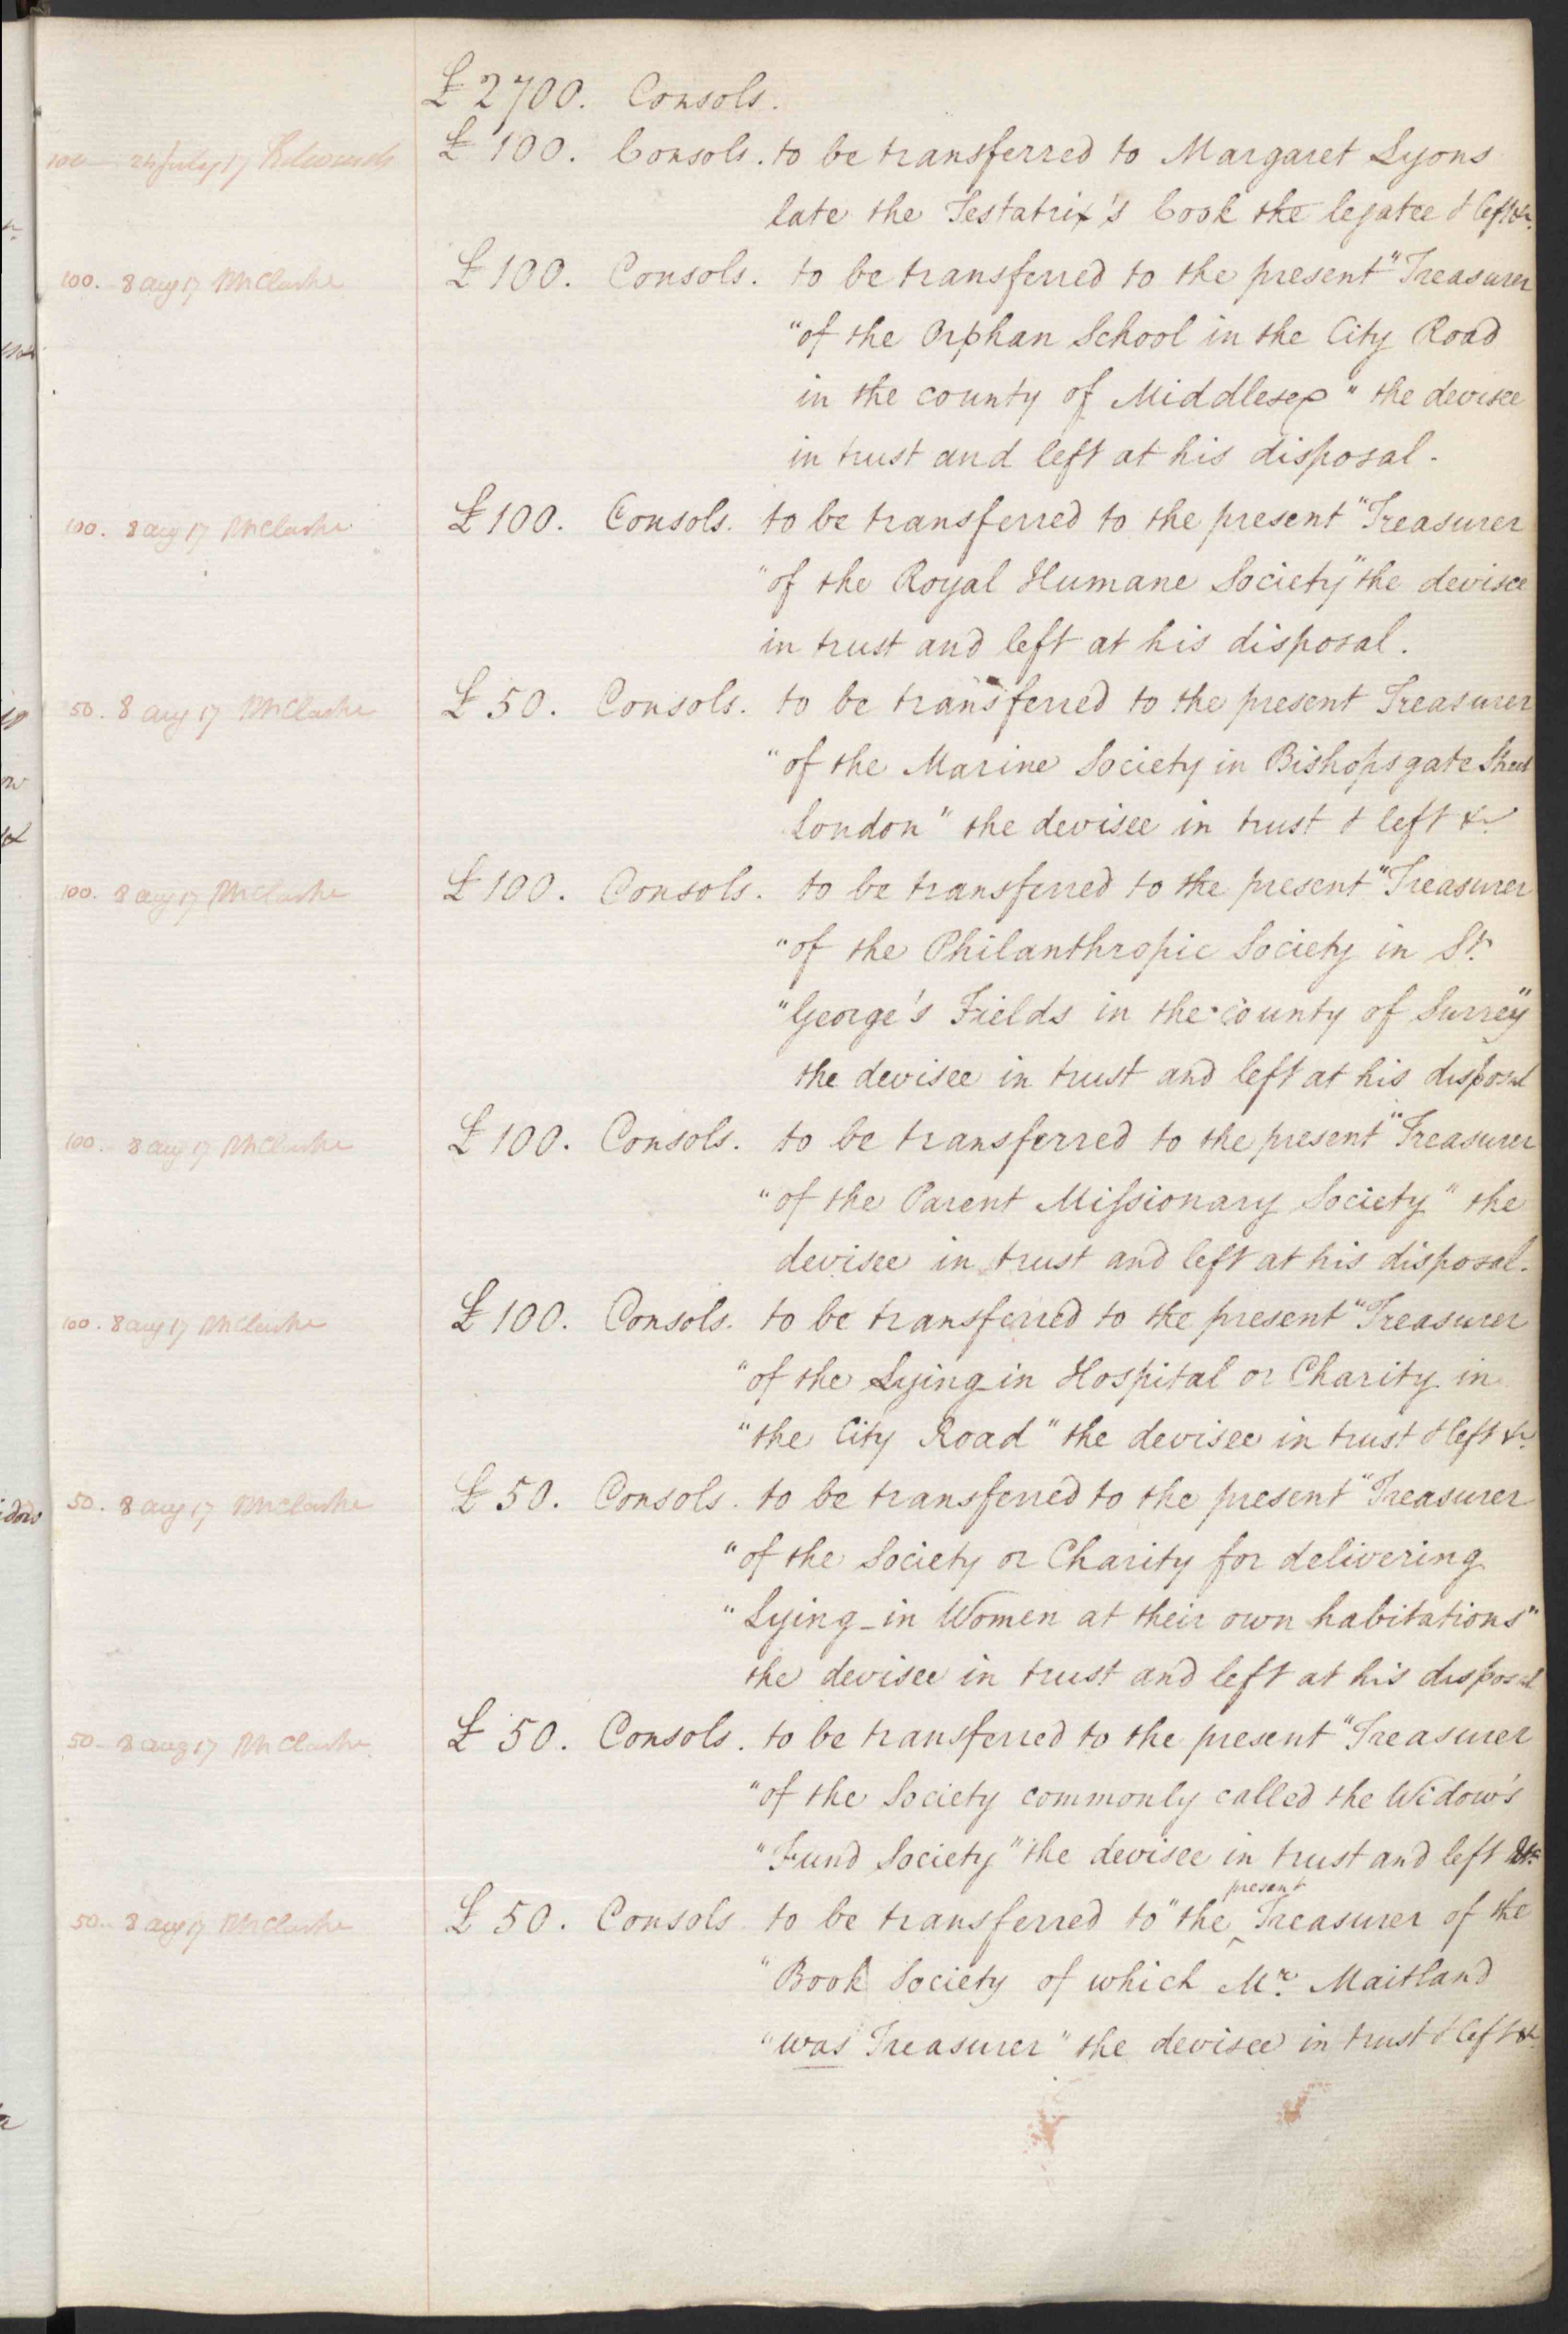 £2700. Consols.
100 24 July 17
£100. Consols. to be transferred to Margaret Lyons
late the Testatrix's Cook the legatee & left &c.
100. 8 aug 17 McClashe
£100. Consols. to be transferred to the present "Treasurer
"of the Orphan School in the City Road
in the county of Middlesex" the devisee
in trust and left at his disposal.
100. 8 aug 17 McClashe
£100. Consols. to be transferred to the present "Treasurer
"of the Royal Humane Society" the devisee
in trust and left at his disposal.
50. 8 aug 17 McClashe
£50. Consols. to be transferred to the present Treasurer
"of the Marine Society in Bishopsgate Street
London" the devisee in trust & left &c
100. 8 aug 17 McClashe
£100. Consols. to be transferred to the present "Treasurer
"of the Philanthropic Society in St.
"George's Fields in the county of Surrey"
the devisee in trust and left at his disposal
100. 8 aug 17 McClashe
£100. Consols. to be transferred to the present "Treasurer
"of the Parent Missionary Society" the
devisee in trust and left at his disposal.
100. 8 aug 17 McClashe
£100. Consols. to be transferred to the present "Treasurer
"of the Lying in Hospital or Charity in
"the City Road" the devisee in trust & left &c.
50. 8 aug 17 McClashe
£50. Consols. to be transferred to the present "Treasurer
"of the Society or Charity for delivering
"Lying-in Women at their own habitations"
the devisee in trust and left at his disposal
50. 8 aug 17 McClashe
£50. Consols. to be transferred to the present "Treasurer
"of the Society commonly called the Widow's
"Fund Society" the devisee in trust and left &c
present
50. 8 aug 17 McClashe
£50. Consols to be transferred to "the Treasurer of the
"Book Society of which Mr. Maitland
"was Treasurer" the devisee in trust & left &c